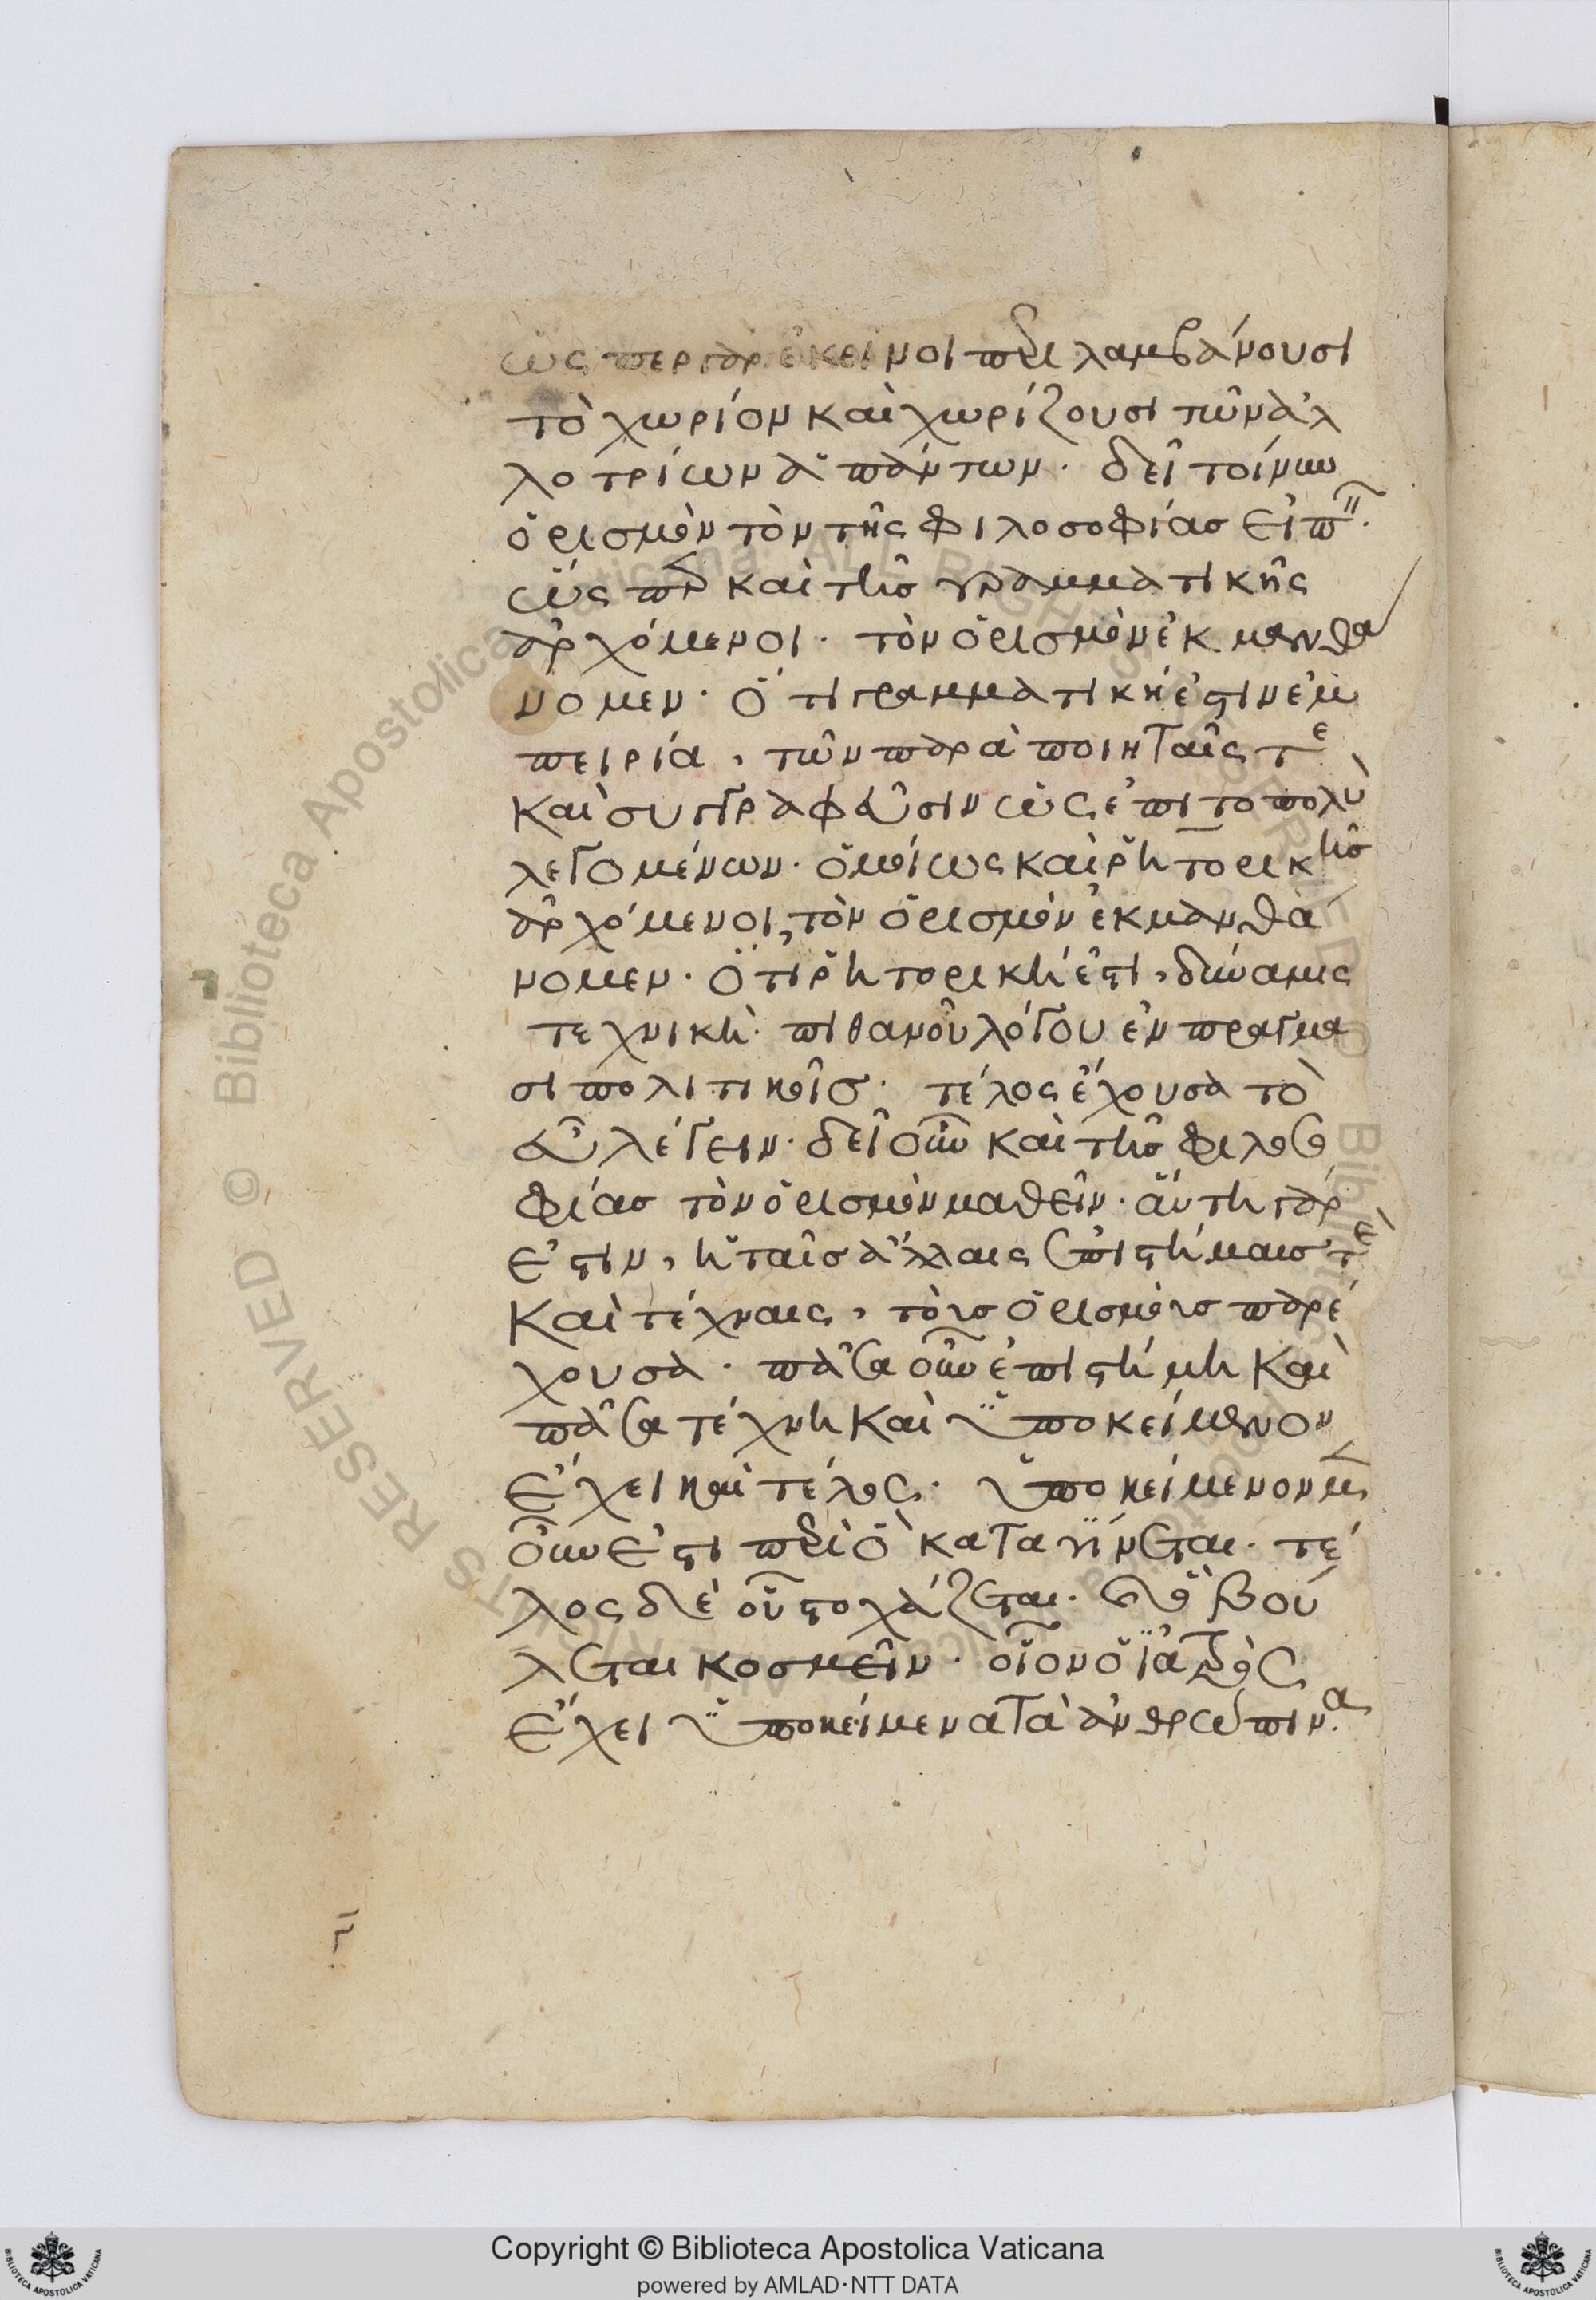 ὥςπερ γὰρ ἐκεῖνοι περιλαμβάνουσι
τὸ χωρίον καὶ χωρίζουσι τῶν ἀλ
λοτρίων ἁπάντων. δεῖ τοίνυν
ὁρισμὸν τὸν τῆς φιλοσοφίας εἰπεῖν.
ὥςπερ καὶ τῆς γραμματικῆς
ἀρχόμενοι. τὸν ὁρισμὸν ἐκμανθά
νομεν. ὅτι γραμματική ἐστιν ἐμ
πειρία, τῶν παρὰ ποιηταῖς τε
καὶ συγγραφεῦσιν ὡς ἐπι το πολὺ
λεγομένων. ὁμοίως καὶ ῥητορικῆς
ἀρχόμενοι, τὸν ὁρισμὸν ἐκμανθά
νομεν. ὅτι ῥητορική ἐστι, δύναμις
τεχνικὴ. πιθανοῦ λόγου ἐν πράγμα
σι πολιτικοῖς. τέλος ἔχουσα τὸ
εὖ λέγειν. δεῖ οὖν καὶ τῆς φιλοσο
φίας τὸν ὁρισμὸν μαθεῖν. αὕτη γὰρ
ἐστιν, ἡ ταῖς ἄλλαις ἐπιστήμαις τὲ
καὶ τέχναις, τοὺς ὁρισμοὺς παρέ
χουσα. πᾶσα οὖν ἐπιστήμη καὶ
πᾶσα τέχνη καὶ ὑποκείμενον
ἔχει καὶ τέλος. ὑποκείμενον μὲν
οὖν ἐστι περὶ ὃ καταγίνεται. τέ
λος δὲ οὗ στοχάζεται. καὶ ὃ βού
λεται κοσμεῖν. οἷον ὁ ἰατρὸς
ἔχει ὑποκείμενα τὰ ἀνθρώπινα
Copyright © Biblioteca Apostolica Vaticana
powered by AMLAD·NTT DATA